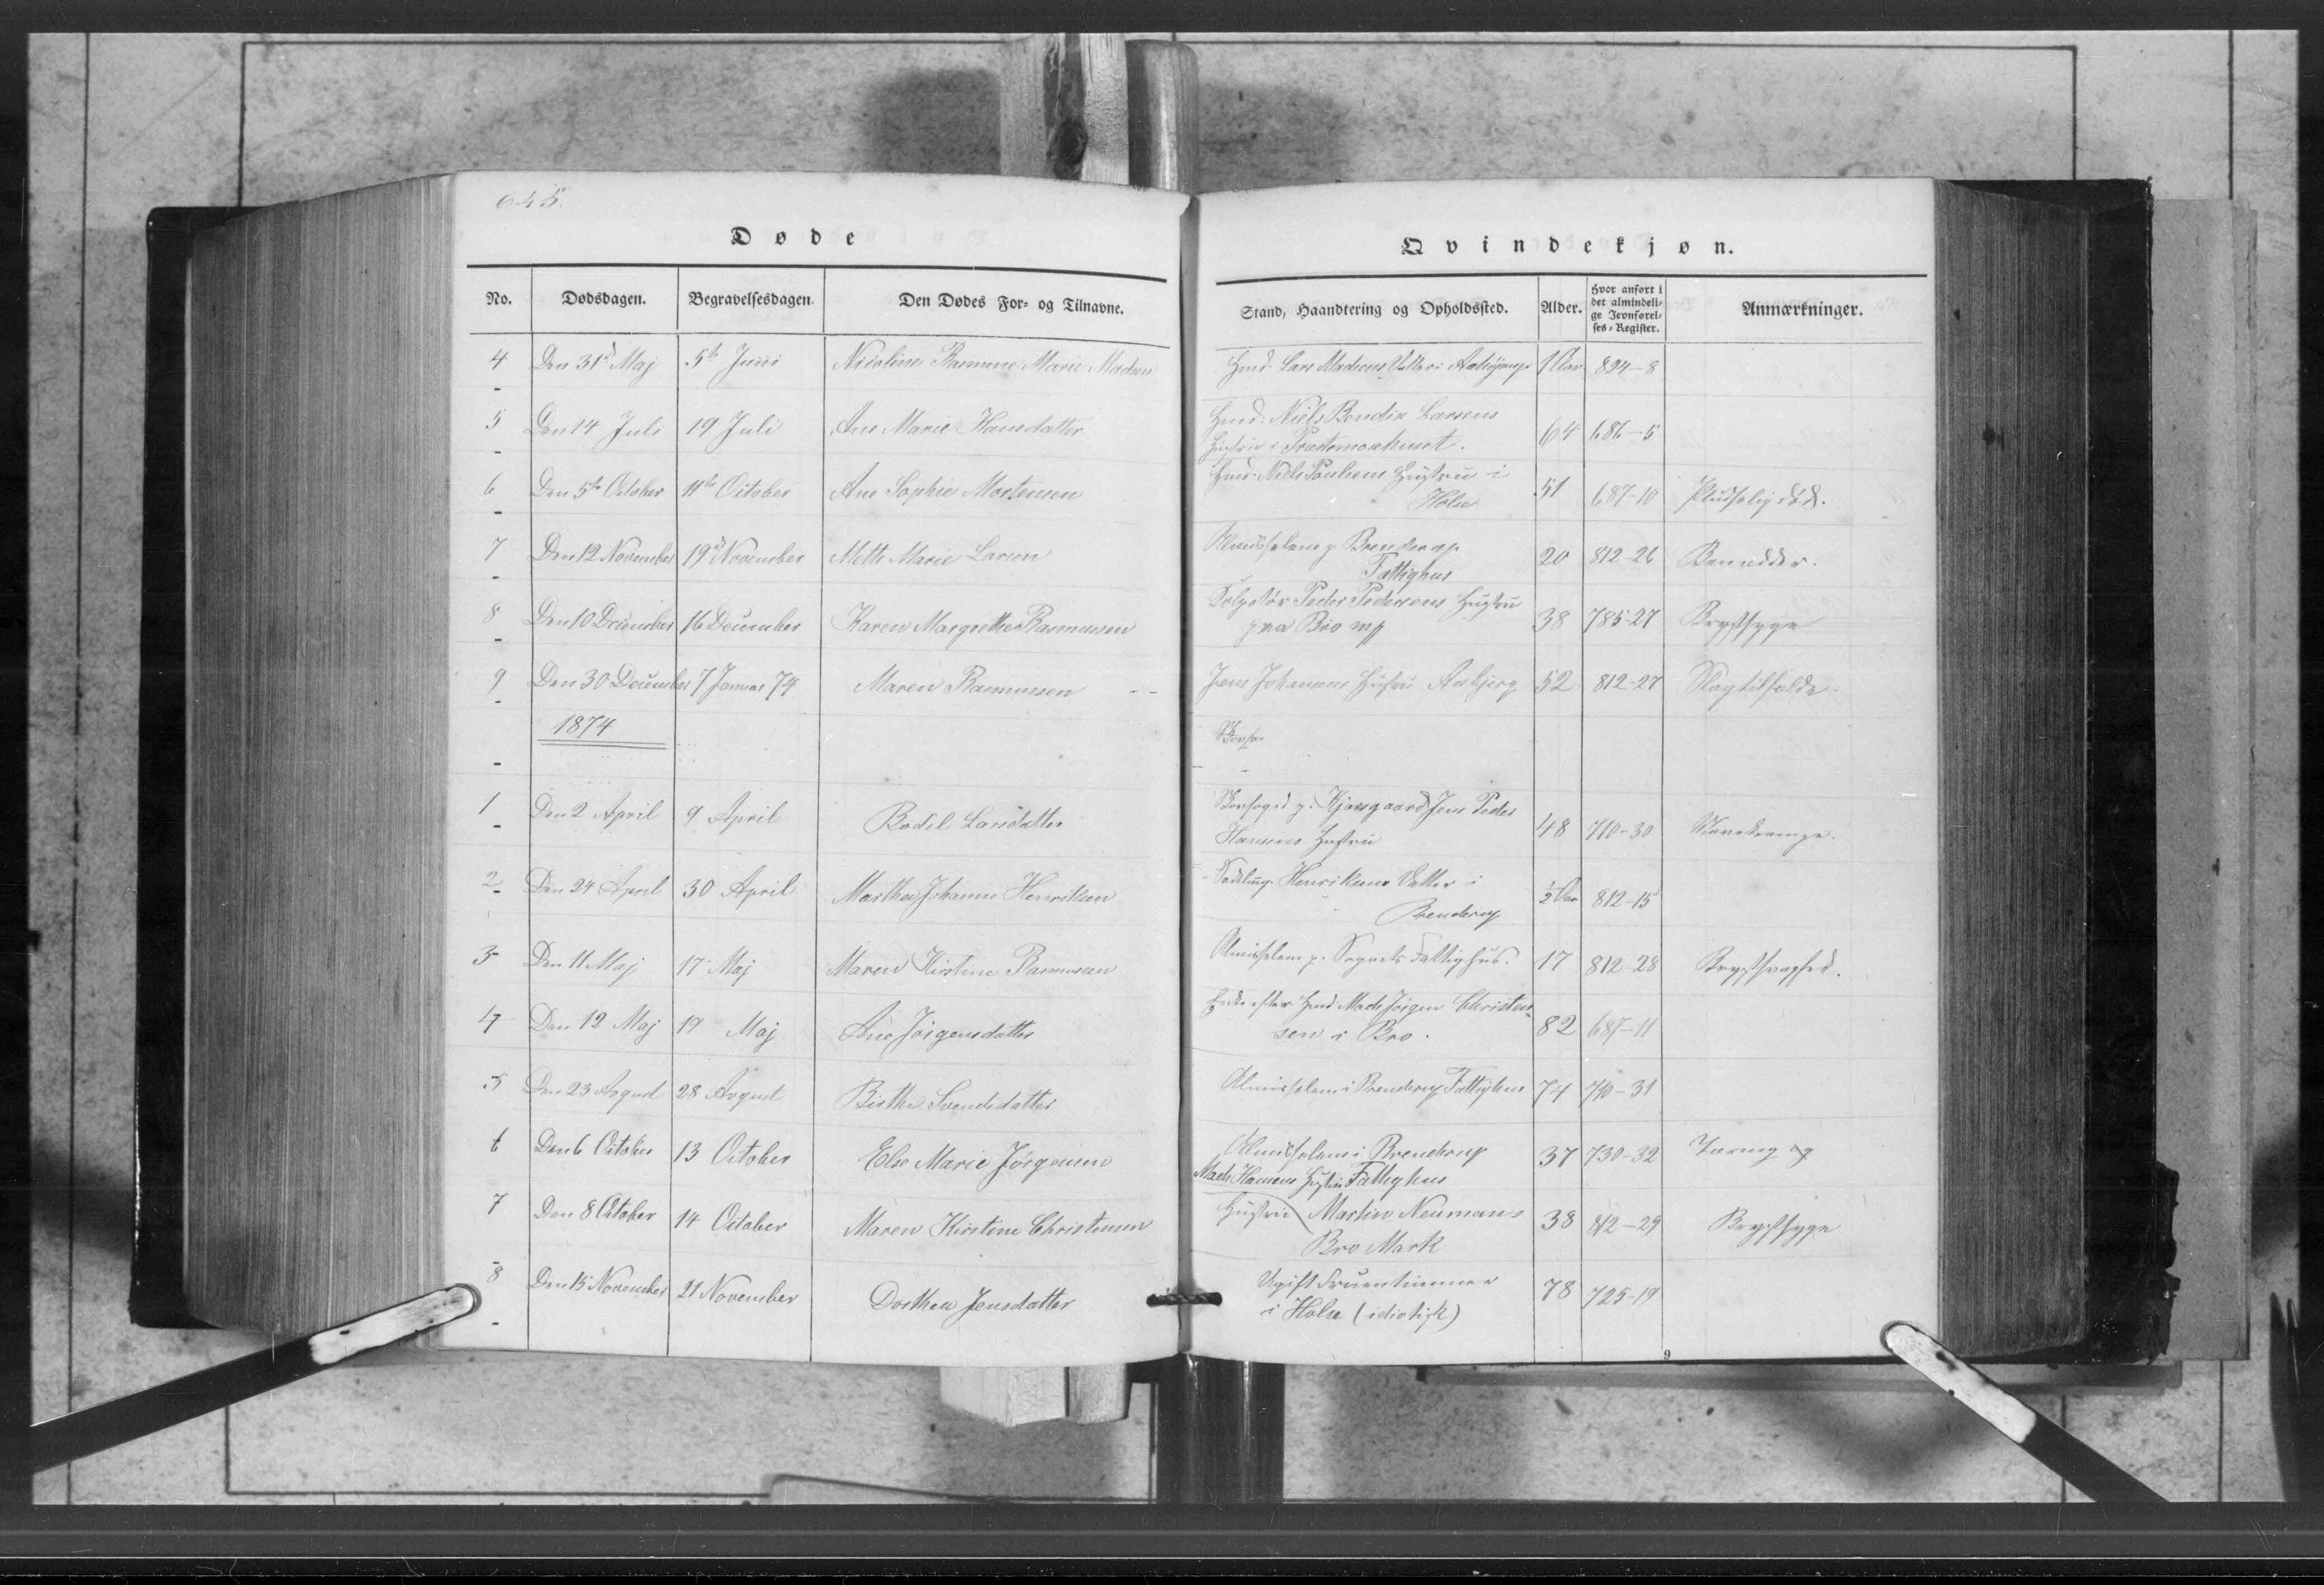 645.
Døde
Qvindekjøn.
No. Dødsdagen. Begravelsesdagen. Den Dødes For- og Tilnavne. Stand, Haandtering og Opholdssted. Alder. Hvor anført i det almindelige Jevnførelses-Register. Anmærkninger.
4 Den 31 Maj 5te Juni Nicoline Rasmine Marie Madsen Hmd. Lars Madsens Datter i 1 Aar 894-8
5 Den 14 Juli 19 Juli Ane Marie Hansdatter Hmd. Niels Bendix Larsens
Hustru i 64 686-5
6 Den 5te October 11te October Ane Sophie Mortensen Hmd. Niels Poulsens Hustru i
Holse 51 687-10 Pludselig død.
7 Den 12 November 19 November Mette Marie Larsen Almisselem p. Brenderup
Fattighus 20 812-26 Benedder.
8 Den 10 December 16 December Karen Margrethe Rasmussen Peder Pedersens Hustru
paa Bro 38 785-27 Brystsyge
9 Den 30 December 7 Januar 74 Maren Rasmussen Jens Johansens Hustru 52 812-27 Slagtilfælde.
1874
1 Den 2 April 9 April Bodil Larsdatter Skovfoged p. Kjærsgaard Jens Peder
Hansens Hustru 48 710-30
2 Den 24 April 30 April Marthea Johanne Henriksen Henriksens Datter i
Brenderup 1/2 Aar 812-15
3 Den 11 Maj 17 Maj Maren Kirstine Rasmussen Almisselem p. Sognets Fattighus. 17 812-28 Brystsvaghed.
4 Den 12 Maj 19 Maj Ane Jörgensdatter Enke efter Hmd. Mads Jörgen Christen-
sen i Bro. 82 687-11
5 Den 23 Avgust 28 Avgust Birthe Svendsdatter Almisselem i Brenderup Fattighus 74 710-31
6 Den 6 October 13 October Else Marie Jørgensen Almisselem i Brenderup
Mads Hansens Hustru Fattighus 37 730-32 Tæring
7 Den 8 October 14 October Maren Kirstine Christensen Hustru Martin Neumans
Bro Mark 38 812-29 Brystsyge
8 Den 15 November 21 November Dorthea Jensdatter Ugift Fruentimmer
i Holse (idiotisk) 78 725-19
9